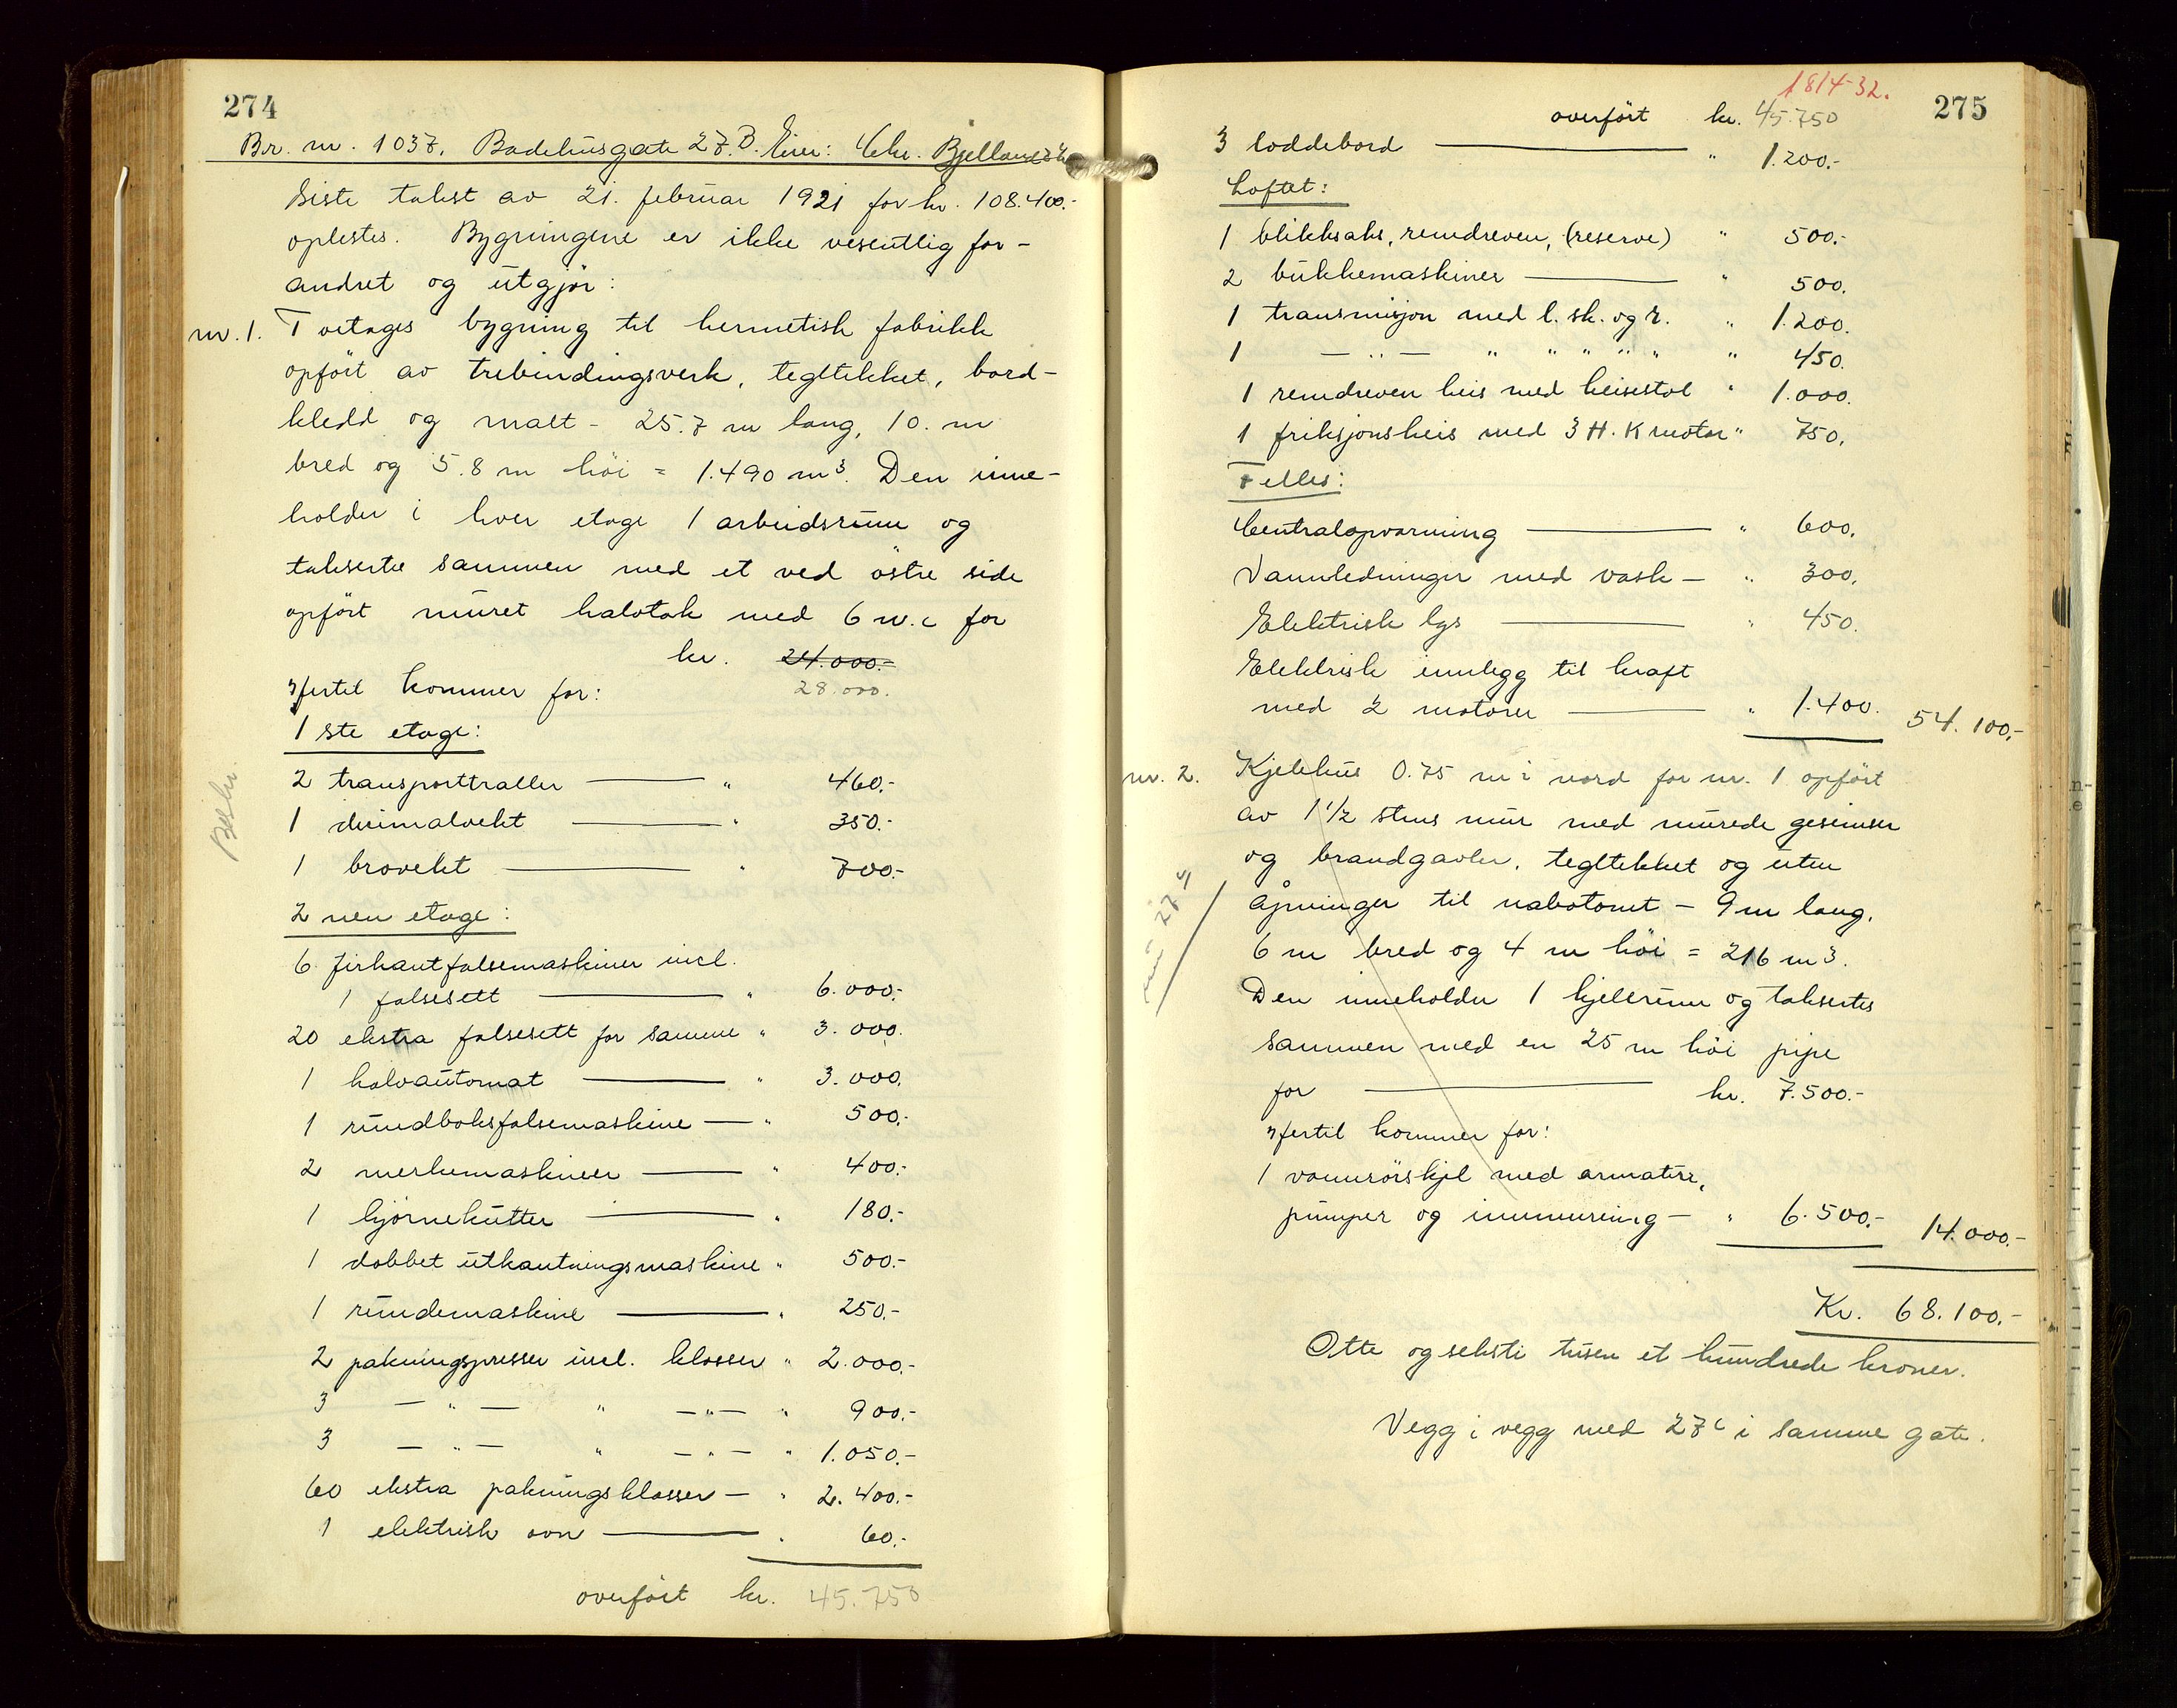 274
Br. nr. 1037. Badehusgate 27B. Eier: Chr. Bjelland & Co
Siste takst av 21. februar 1921 for kr. 108.400.-
oplestes. Bygningene er ikke vesentlig for-
andret og utgjør:
nr. 1. Toetages bygning til hermetisk fabrikk
opført av trebindingsverk, tegltekket, bord-
kledd og malt - 25.7 m lang, 10. m
bred og 5.8 m höi = 1.490 m3. Den inne-
holder i hver etage 1 arbeidsrum og
takserte sammen med et ved östre side
opfört muret halvtak med 6 w.c for
kr. 24.000.-
28.000.
Hertil kommer for:
1ste etage:
2 transporttraller — " 460.-
1 desimalvekt — " 350.-
1 brovekt — " 700.-
Beskr.
2nen etage:
6 firkantfalsemaskiner incl.
1 falsesett — " 6.000.-
20 ekstra falsesett for samme " 3.000.
1 halvautomat — " 3.000.
1 rundboksfalsemaskine — " 500.-
2 merkemaskiner — " 400.-
1 hjørnekutter — " 180.-
1 dobbet utkantningsmaskine " 500.-
1 rundemaskine — " 250.-
2 pakningspresser incl. klosser " 2.000.-
3 — " — " — " — " 900.-
3 — " — " — " — " 1.050.-
60 ekstra pakningsklosser — " 2.400.-
1 elektrisk ovn — " 60.-
overfört kr. 45.750
1814-32.
275
overfört kr. 45.750
3 loddebord — " 1.200.-
Loftet:
1 blikksaks, remdreven, (reserve) " 500.-
2 bukkemaskiner — " 500.
1 transmisjon med l. sk. og r. " 1.200.
1 — " — " " " " " " 450.
1 remdreven heis med heisestol " 1.000.
1 friksjonsheis med 3 H.K motor " 750.
Felles:
Centralopvarming — " 600.
Vannledninger med vask — " 300.
Elektrisk lys — " 450.
Elektrisk innlegg til kraft
med 2 motorer — " 1.400. 54.100.-
nr. 2. Kjelehus 0.75 m i nord for nr. 1 opfört
av 1 1/2 stens mur med murede gesimser
og brandgavler, tegltekket og uten
åpninger til nabotomt - 9 m lang,
6 m bred og 4 m höi = 216 m3.
Den inneholder 1 kjelerum og taksertes
sammen med en 25 m höi pipe
for — kr. 7.500.-
Hertil kommer for:
1 vannrörskjel med armatur,
pumper og innmuring — " 6.500.- 14.000.-
Kr. 68.100.-
Otte og seksti tusen et hundrede kroner.
Vegg i vegg med 27c i samme gate.